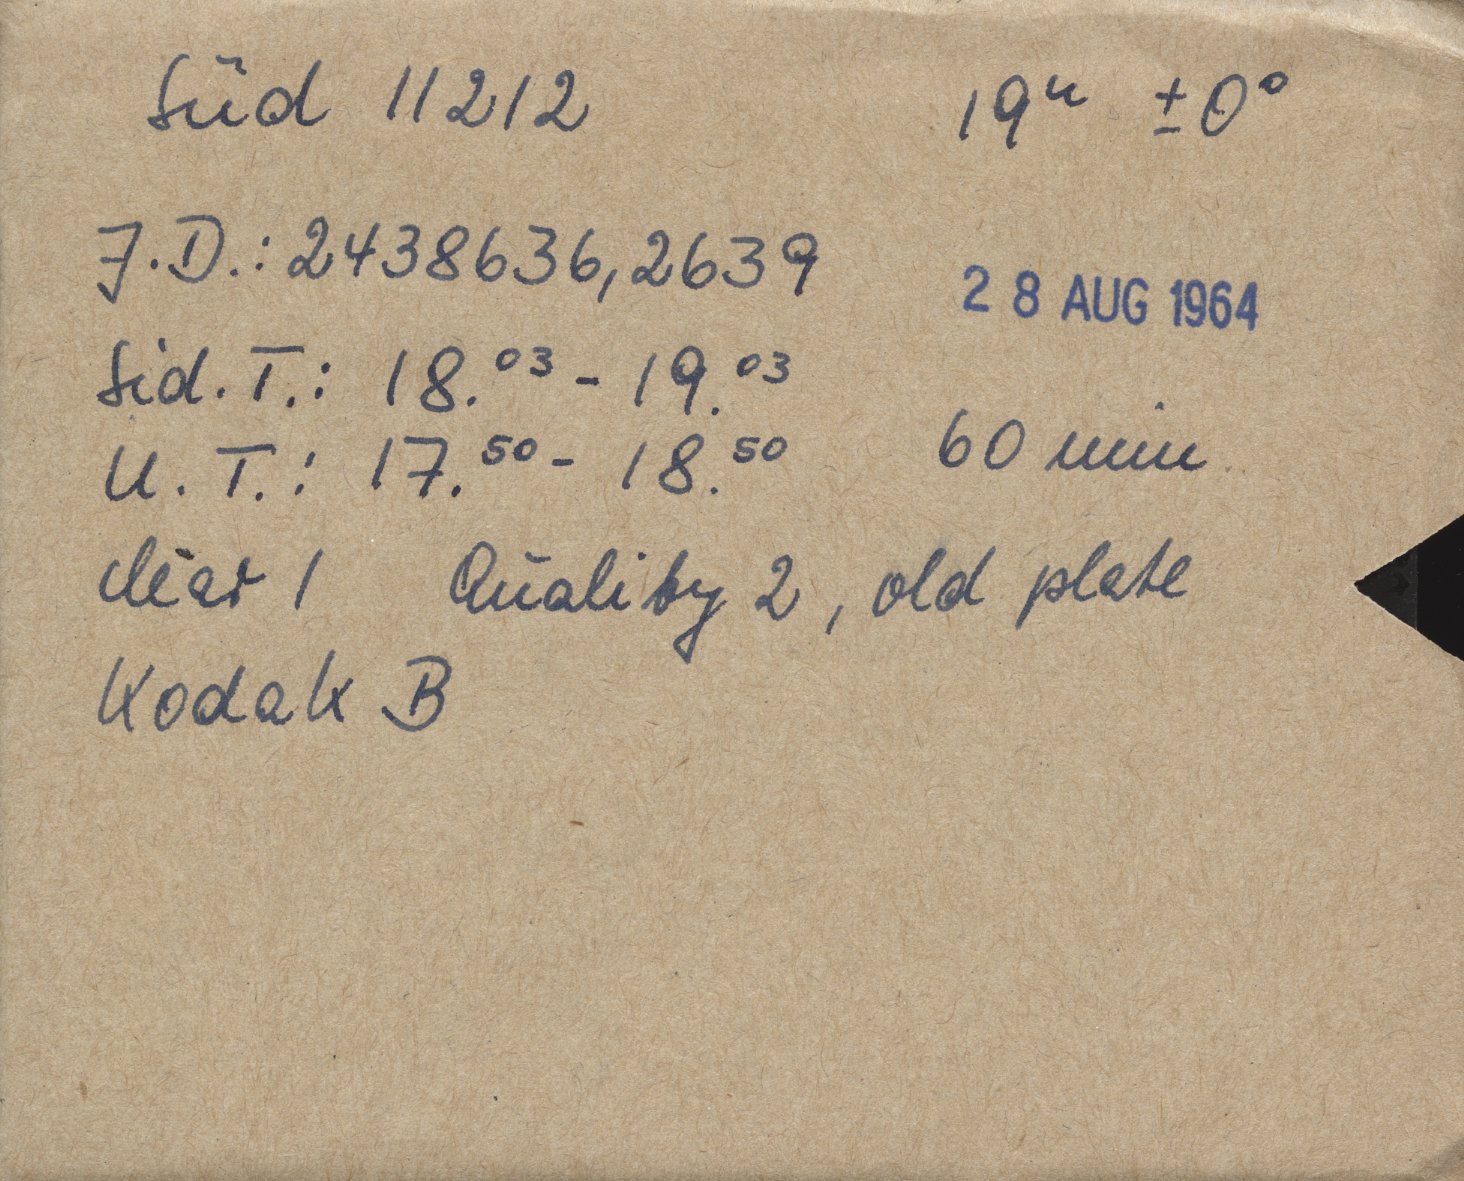 Süd 11212 19ʰ ±0°
J.D.: 2438636,2639
28 AUG 1964
Sid. T.: 18.⁰³ - 19.⁰³
U. T.: 17.⁵⁰ - 18.⁵⁰ 60 min
clear 1 Quality 2, old plate
Kodak B